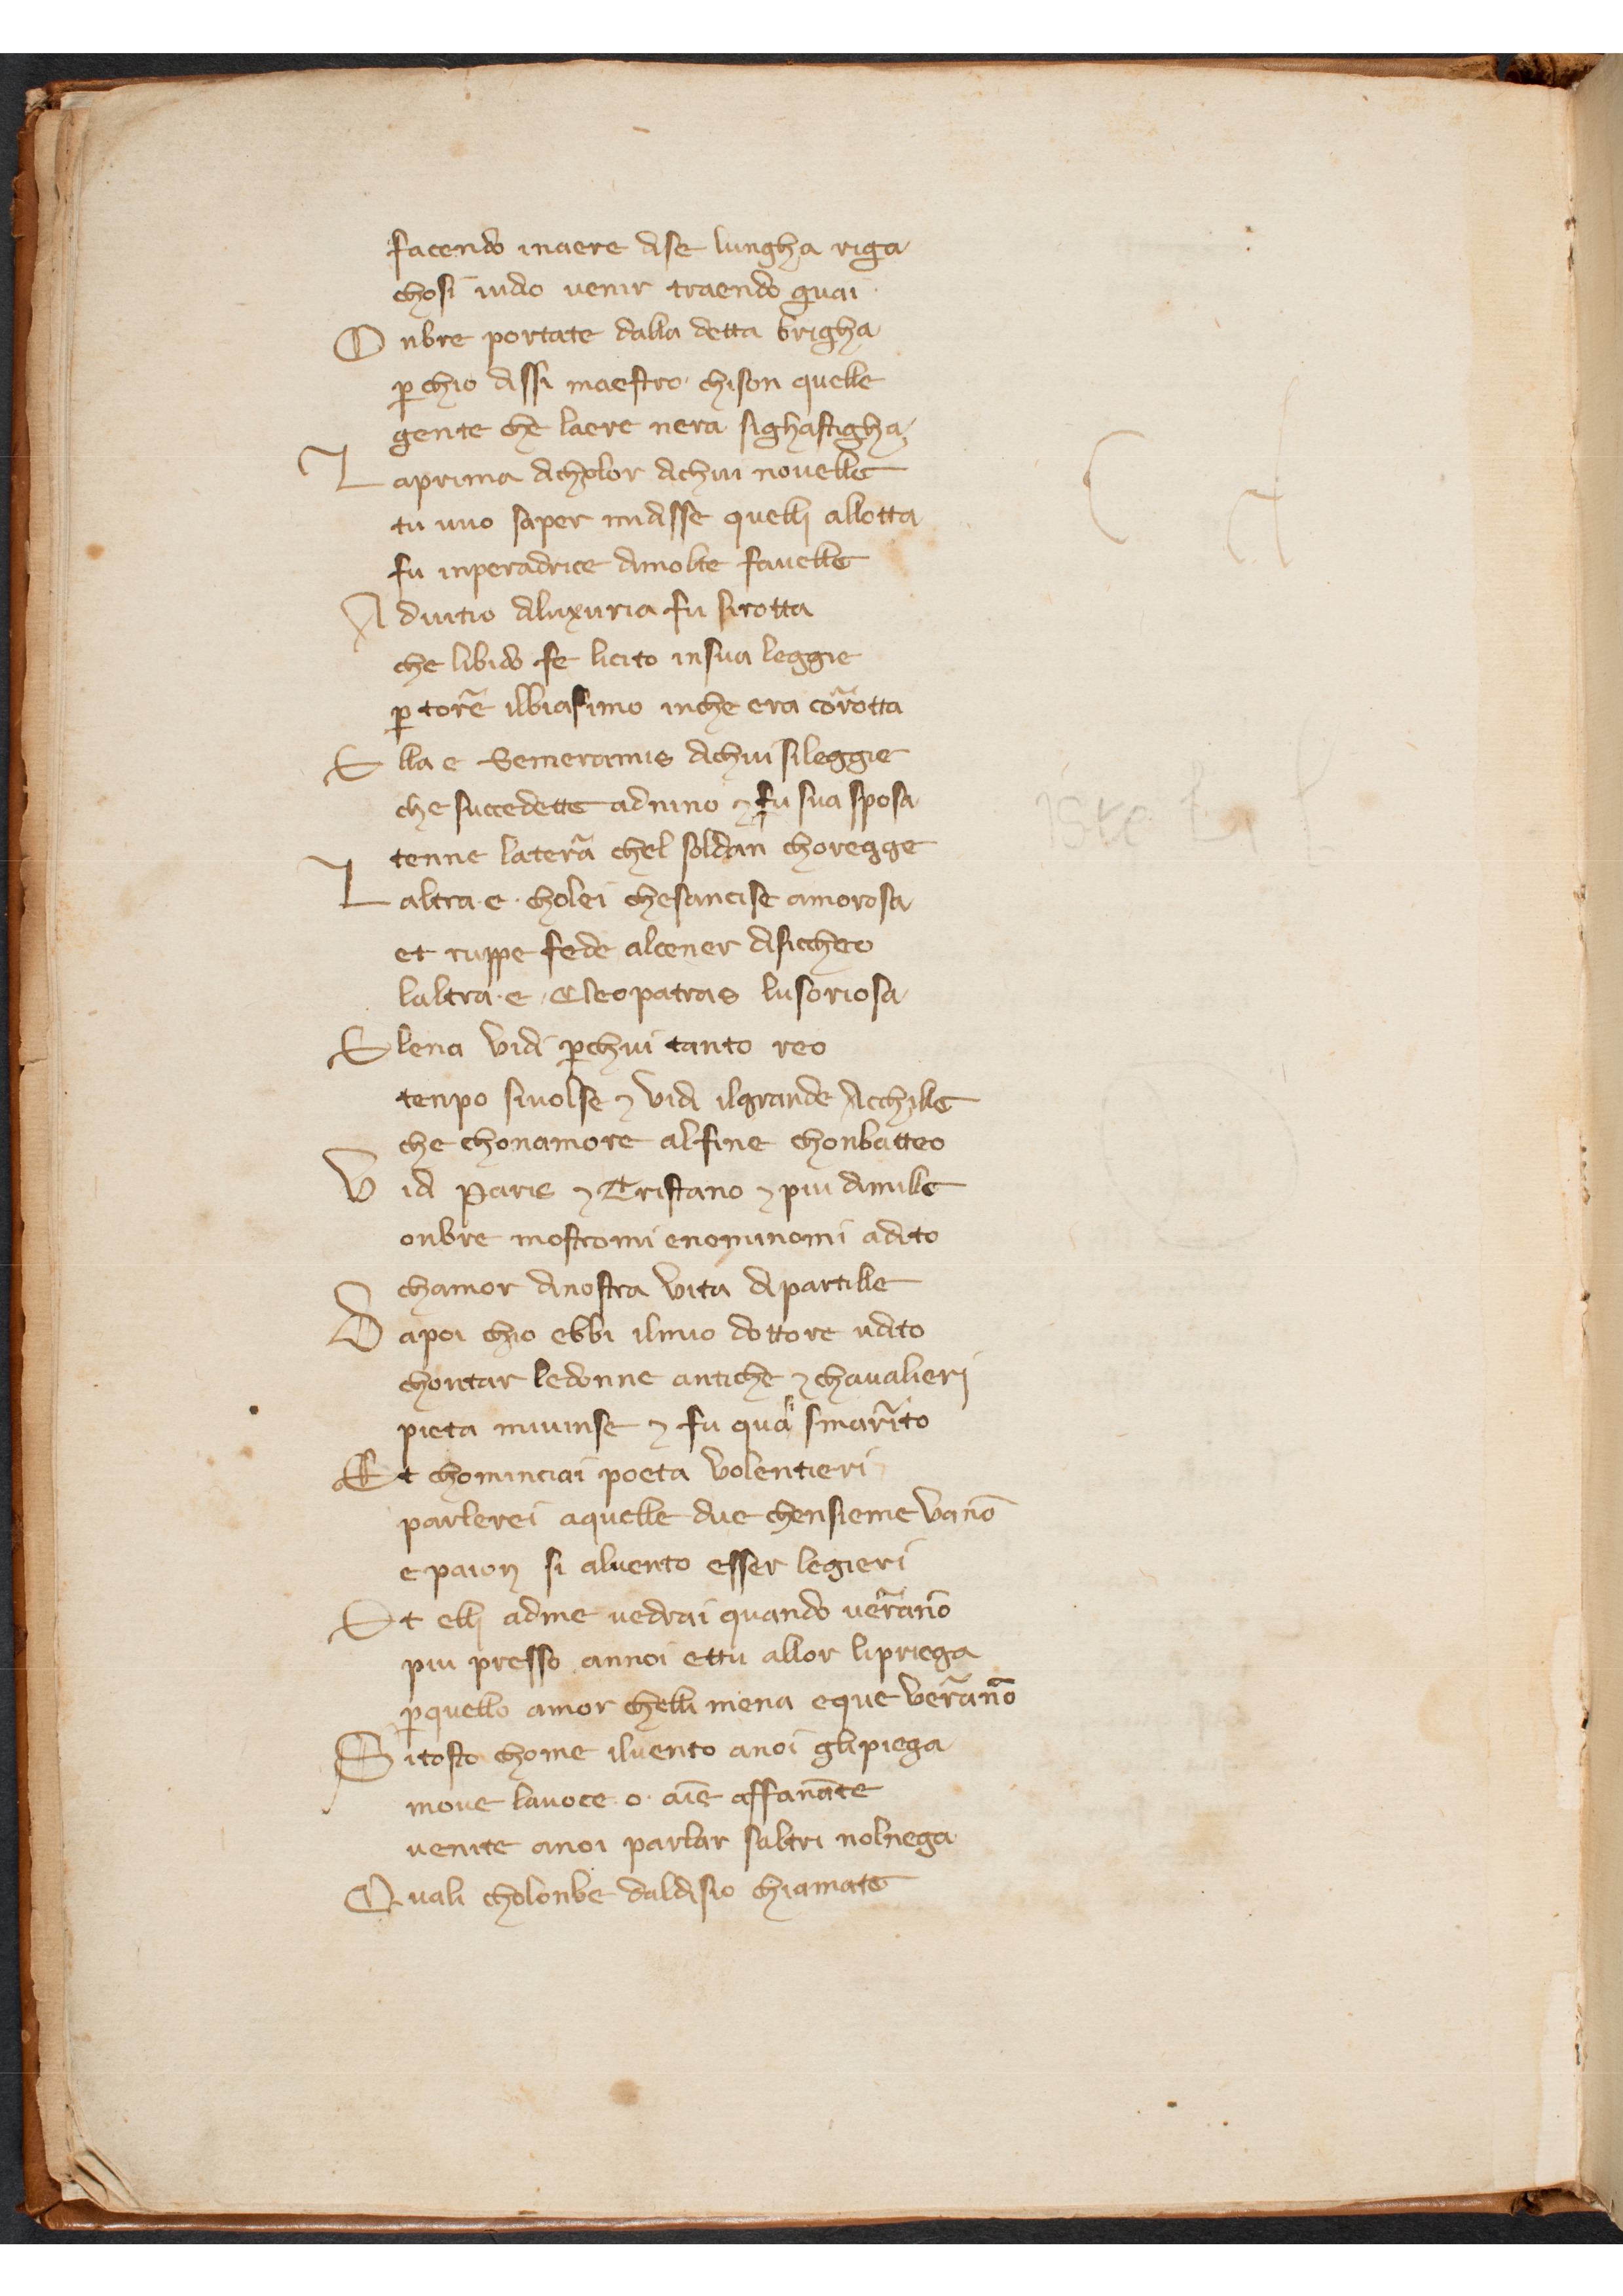 facendo inaere dise lungha riga
chosi uidio uenir traendo guai
Onbre portate dalla detta brigha
p̱chio dissi maestro chison quelle
gente che laere nera sighastigha
Laprima dicholor dichui nouelle
tu uuo saper midisse quellj allotta
fu inperadrice dimolte fauelle
Aduitio diluxuria fu sirotta
che libido fe licito insua leggie
p̱ torr̃e ilbiasimo inche era cor̃otta
Ella e Semeramis dichui sileggie
che succedette adnino ⁊ fu sua sposa
tenne later̃a chel soldan choregge
Laltra · e · cholei chesancise amorosa
et ruppe fede alcener disiccheo
laltra · e · Cleopatras lusoriosa
Elena vidi p̱chui tanto reo
tenpo siuolse ⁊ vidi ilgrande Acchille
che chonamore alfine chonbatteo
Vidi Paris ⁊ Tristano ⁊ piu dimille
onbre mostromi enominomi adito
chamor dinostra vita dipartille
Dapoi chio ebbi ilmio dottore udito
chontar ledonne antiche ⁊ chaualierj
pieta miuinse ⁊ fu quasi smar̃ito
Et chominciai poeta volentieri
parlerei aquelle due chensieme vano̅
e paion si aluento esser legieri
Et ellj adme uedrai quando uer̃ano̅
piu presso annoi ettu allor lipriega
p̱quello amor chelli mena eque ver̃ano̅
Sitosto chome iluento anoi glipiega
moue lauoce · o · ai̅e affana̅te
uenite anoi parlar saltri nolniega
Quali cholonbe daldisio chiamate